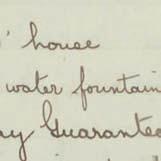 ' house
water fountain
ay Guarantee